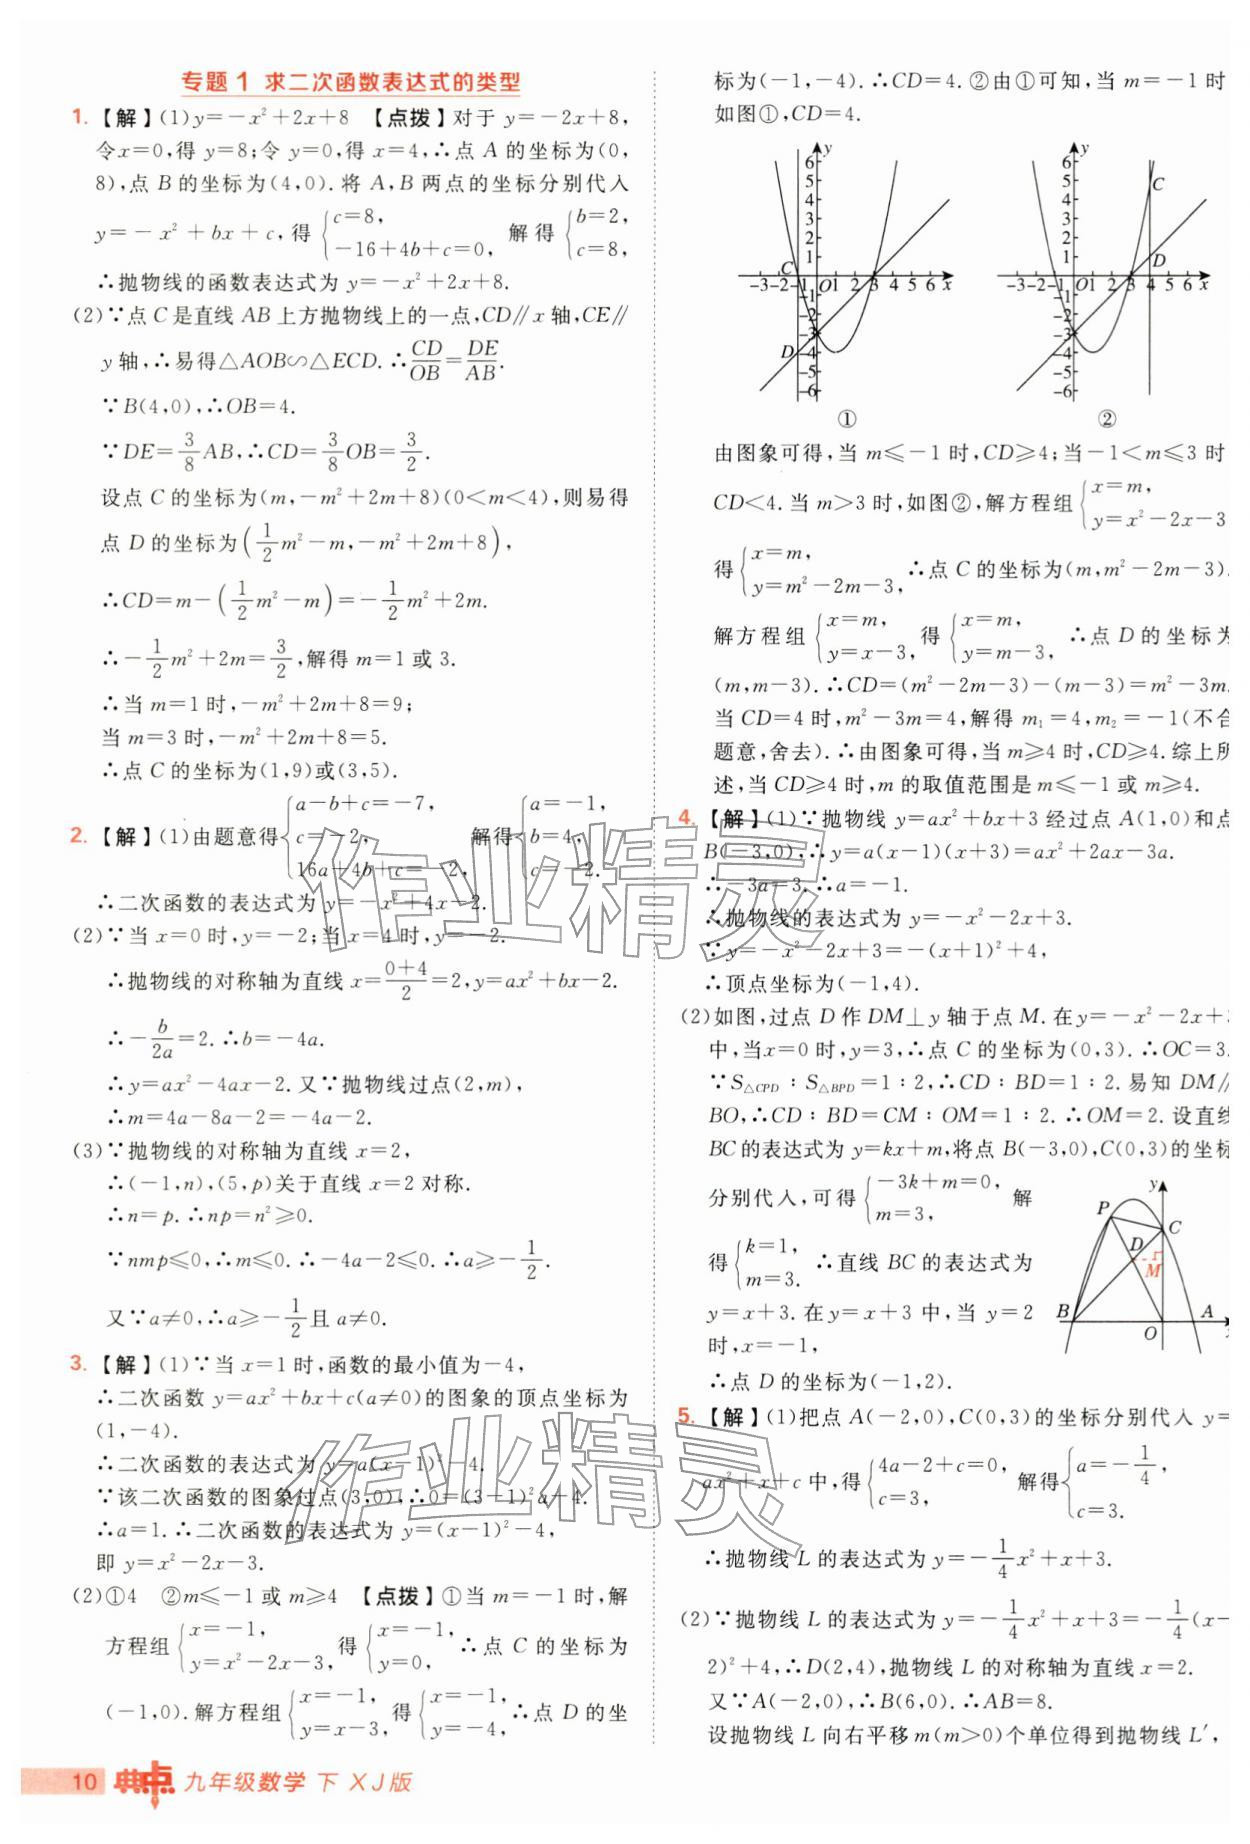 专题 1 求二次函数表达式的类型
1.【解】(1)y=-x²+2x+8 【点拨】对于 y=-2x+8,
令x=0,得 y=8;令 y=0,得 x=4,∴点 A 的坐标为(0,
8),点 B 的坐标为(4,0).将 A,B 两点的坐标分别代入
y=-x²+bx+c,得{c=8, -16+4b+c=0, 解得{b=2, c=8,
∴抛物线的函数表达式为 y=-x²+2x+8.
(2)∵点 C 是直线 AB 上方抛物线上的一点,CD∥x 轴,CE∥
y 轴,∴易得△AOB∽△ECD.∴CD/OB=DE/AB.
∵B(4,0),∴OB=4.
∵DE=3/8AB,∴CD=3/8OB=3/2.
设点 C 的坐标为(m,-m²+2m+8)(0<m<4),则易得
点 D 的坐标为(1/2m²-m,-m²+2m+8),
∴CD=m-(1/2m²-m)=-1/2m²+2m.
∴-1/2m²+2m=3/2,解得 m=1 或 3.
∴当 m=1 时,-m²+2m+8=9;
当 m=3 时,-m²+2m+8=5.
∴点 C 的坐标为(1,9)或(3,5).
2.【解】(1)由题意得{a-b+c=-7, c=-2, 16a+4b+c=-2, 解得{a=-1, b=4, c=-2.
∴二次函数的表达式为 y=-x²+4x-2.
(2)∵当 x=0 时,y=-2;当 x=4 时,y=-2.
∴抛物线的对称轴为直线 x=0+4/2=2,y=ax²+bx-2.
∴-b/2a=2.∴b=-4a.
∴y=ax²-4ax-2.又∵抛物线过点(2,m),
∴m=4a-8a-2=-4a-2.
(3)∵抛物线的对称轴为直线 x=2,
∴(-1,n),(5,p)关于直线 x=2 对称.
∴n=p.∴np=n²≥0.
∵nmp≤0,∴m≤0.∴-4a-2≤0.∴a≥-1/2.
又∵a≠0,∴a≥-1/2且 a≠0.
3.【解】(1)∵当 x=1 时,函数的最小值为-4,
∴二次函数 y=ax²+bx+c(a≠0)的图象的顶点坐标为
(1,-4).
∴二次函数的表达式为 y=a(x-1)²-4.
∵该二次函数的图象过点(3,0),∴0=(3-1)²a-4.
∴a=1.∴二次函数的表达式为 y=(x-1)²-4,
即 y=x²-2x-3.
(2)①4 ②m≤-1 或 m≥4 【点拨】①当 m=-1 时,解
方程组{x=-1, y=x²-2x-3, 得{x=-1, y=0, ∴点 C 的坐标为
(-1,0).解方程组{x=-1, y=x-3, 得{x=-1, y=-4, ∴点 D 的坐
标为(-1,-4).∴CD=4.②由①可知,当 m=-1 时
如图①,CD=4.
y
6
5
4
3
2
1
C
-3-2-1 O1 2 3 4 5 6 x
-1
-2
-3
D -4
-5
-6
①
y
6
5
4
3
2
1
C
D
-3-2-1 O1 2 3 4 5 6 x
-1
-2
-3
-4
-5
-6
②
由图象可得,当 m≤-1 时,CD≥4;当-1<m≤3 时
CD<4.当 m>3 时,如图②,解方程组{x=m, y=x²-2x-3
得{x=m, y=m²-2m-3, ∴点 C 的坐标为(m,m²-2m-3).
解方程组{x=m, y=x-3, 得{x=m, y=m-3, ∴点 D 的坐标为
(m,m-3).∴CD=(m²-2m-3)-(m-3)=m²-3m.
当 CD=4 时,m²-3m=4,解得 m₁=4,m₂=-1(不合
题意,舍去).∴由图象可得,当 m≥4 时,CD≥4.综上所
述,当 CD≥4 时,m 的取值范围是 m≤-1 或 m≥4.
4.【解】(1)∵抛物线 y=ax²+bx+3 经过点 A(1,0)和点
B(-3,0),∴y=a(x-1)(x+3)=ax²+2ax-3a.
∴-3a=3.∴a=-1.
∴抛物线的表达式为 y=-x²-2x+3.
∵y=-x²-2x+3=-(x+1)²+4,
∴顶点坐标为(-1,4).
(2)如图,过点 D 作 DM⊥y 轴于点 M.在 y=-x²-2x+3
中,当x=0 时,y=3,∴点 C 的坐标为(0,3).∴OC=3.
∵S△CPD∶S△BPD=1∶2,∴CD∶BD=1∶2.易知 DM∥
BO,∴CD∶BD=CM∶OM=1∶2.∴OM=2.设直线
BC的表达式为 y=kx+m,将点 B(-3,0),C(0,3)的坐标
分别代入,可得{-3k+m=0, m=3, 解
得{k=1, m=3. ∴直线 BC 的表达式为
y=x+3.在 y=x+3 中,当 y=2
时,x=-1,
∴点 D 的坐标为(-1,2).
y
P
C
D
M
B
O
A
x
5.【解】(1)把点 A(-2,0),C(0,3)的坐标分别代入 y=
ax²+x+c 中,得{4a-2+c=0, c=3, 解得{a=-1/4, c=3.
∴抛物线 L 的表达式为 y=-1/4x²+x+3.
(2)∵抛物线 L 的表达式为 y=-1/4x²+x+3=-1/4(x-
2)²+4,∴D(2,4),抛物线 L 的对称轴为直线 x=2.
又∵A(-2,0),∴B(6,0).∴AB=8.
设抛物线 L 向右平移 m(m>0)个单位得到抛物线 L′,
作业精灵
作业精灵
10 典点 九年级数学 下 XJ版